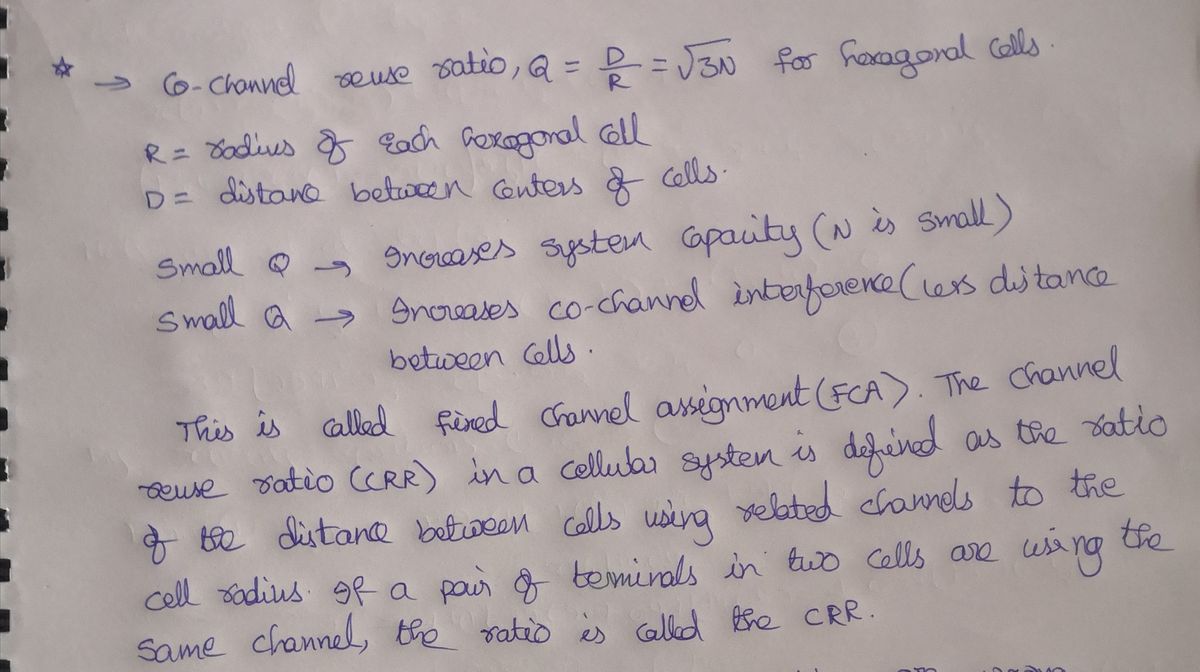 ☆ → Co-channel reuse ratio, Q = D/R = √3N for hexagonal cells.
R = radius of each hexagonal cell
D = distance between centers of cells.
Small Q → Increases system capacity (N is small)
Small Q → Increases co-channel interference (less distance
between cells.
This is called fixed channel assignment (FCA). The channel
reuse ratio (CRR) in a cellular system is defined as the ratio
of the distance between cells using related channels to the
cell radius. If a pair of terminals in two cells are using the
same channel, the ratio is called the CRR.